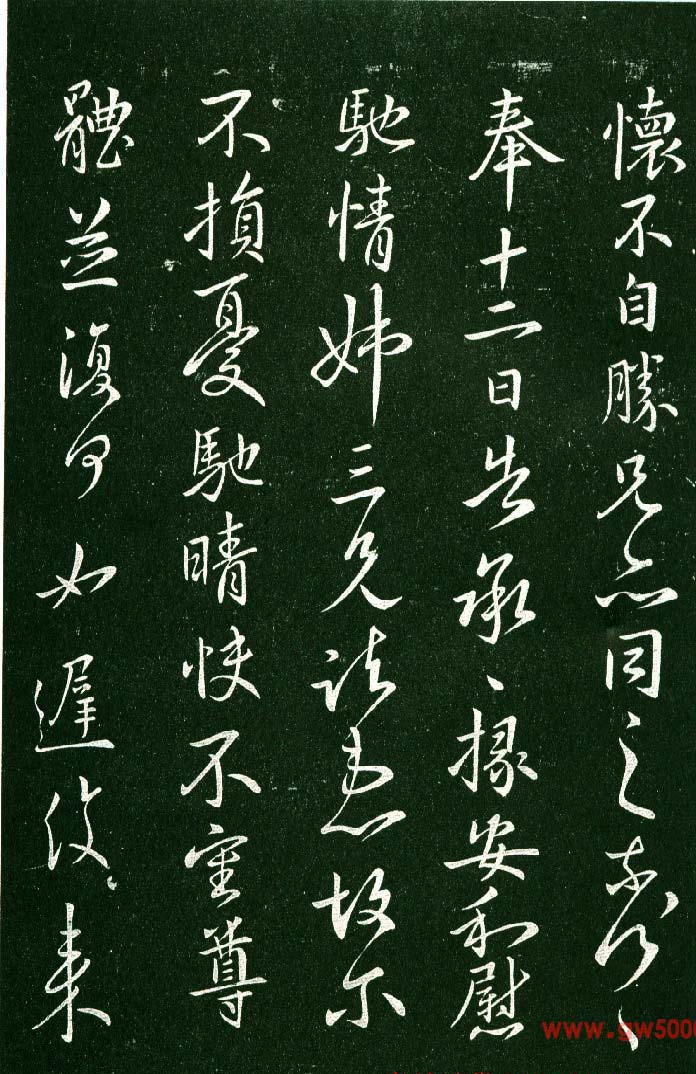 懷不自勝兄亦同之奈何〻
奉十二日告承〻掾安和慰
馳情姊三兄諸患故尔
不損憂馳晴快不審尊
體並復何如遲〻來
www.gw500